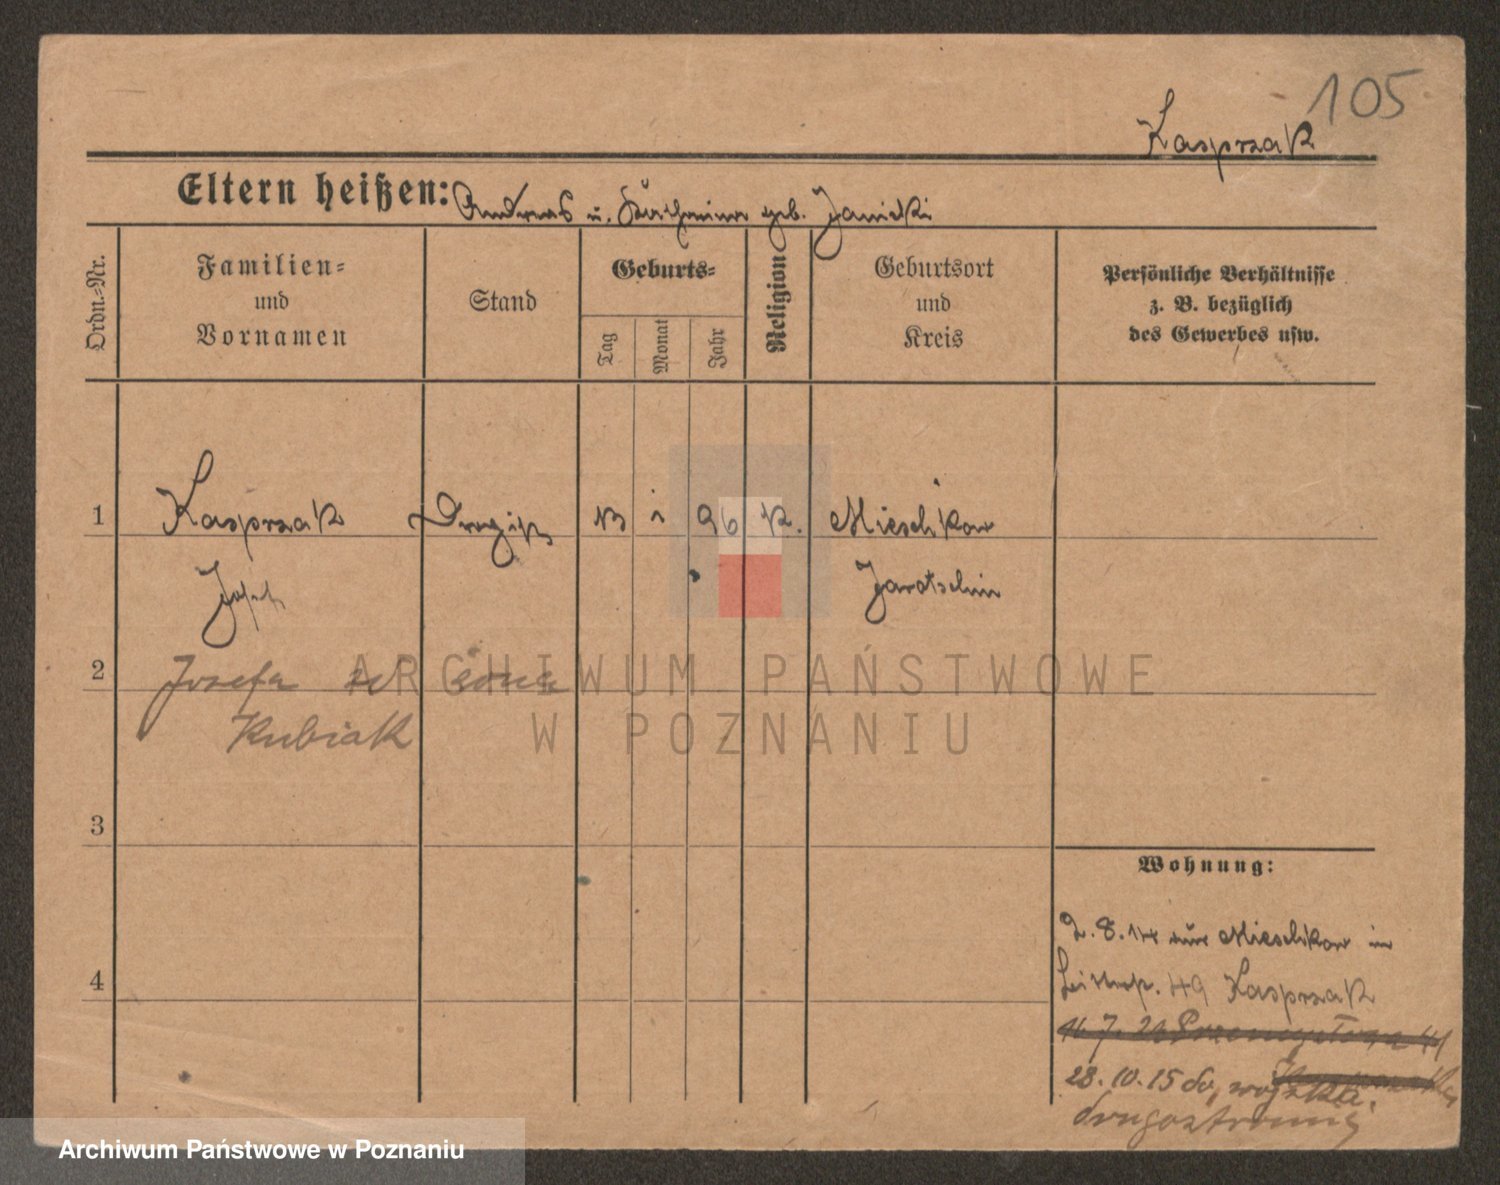 105
Kasprzak
Eltern heißen: Andreas u. Katharina geb. Janicki
Ordn.-Nr.
Familien-
und
Vornamen
Stand
Geburts-
Tag
Monat
Jahr
Religion
Geburtsort
und
Kreis
Persönliche Verhältnisse
z. B. bezüglich
des Gewerbes usw.
1 Kasprzak 13 1 96 K. Mieschkow
Josef Jarotschin
2 Josefa żona
Kubiak
3
4
Wohnung:
2.8.14 aus Mieschkow in
49 Kasprzak
16.7.20 Przemysłowa 41
28.10.15 do wojska.
ARCHIWUM PAŃSTWOWE
W POZNANIU
Archiwum Państwowe w Poznaniu